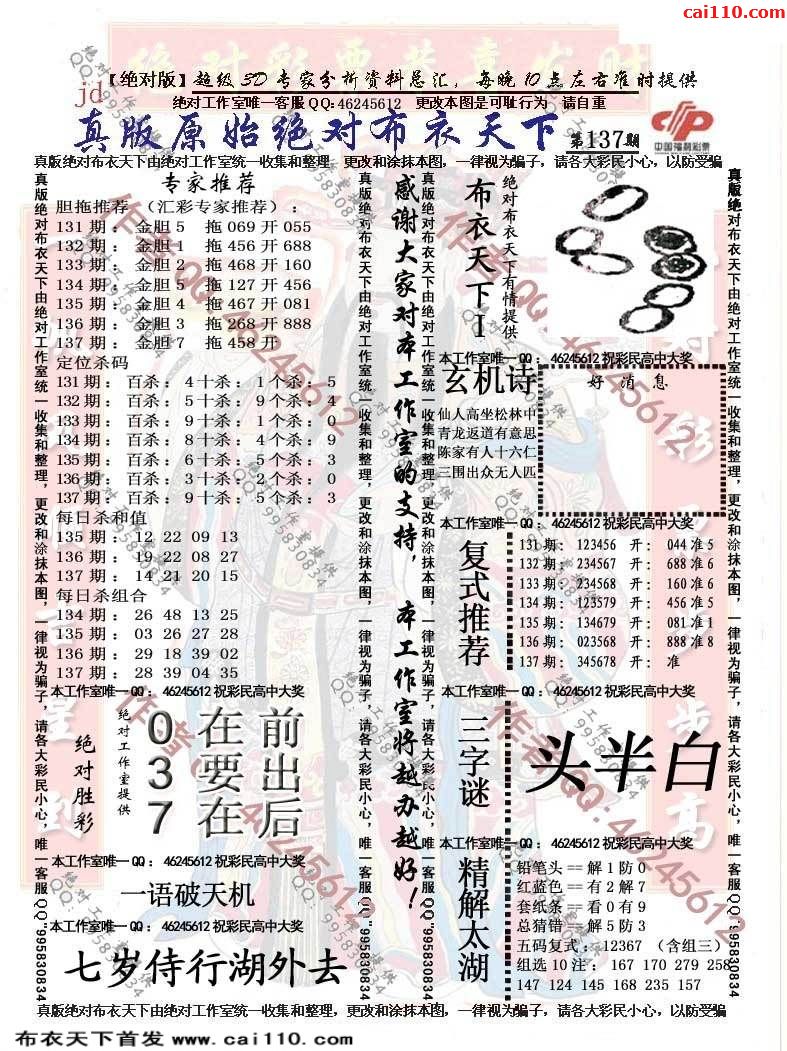 cai110.com
绝对彩票共享发财
【绝对版】超级3D专家分析资料总汇，每晚10点左右准时提供
jd
绝对工作室唯一客服QQ:46245612 更改本图是可耻行为 请自重
真版原始绝对布衣天下 第137期
中国福利彩票
真版绝对布衣天下由绝对工作室统一收集和整理，更改和涂抹本图，一律视为骗子，请各大彩民小心，以防受骗
真版绝对布衣天下由绝对工作室统一收集和整理，更改和涂抹本图，一律视为骗子，请各大彩民小心，唯一客服QQ"995830834
专家推荐
胆拖推荐 （汇彩专家推荐）：
131期：金胆5 拖069开055
132期：金胆1 拖456开688
133期：金胆2 拖468开160
134期：金胆5 拖127开456
135期：金胆4 拖467开081
136期：金胆3 拖268开888
137期：金胆7 拖458开
定位杀码
131期：百杀：4十杀：1个杀：5
132期：百杀：5十杀：9个杀：4
133期：百杀：9十杀：1个杀：0
134期：百杀：8十杀：4个杀：9
135期：百杀：6十杀：5个杀：3
136期：百杀：3十杀：2个杀：0
137期：百杀：9十杀：5个杀：3
每日杀和值
135期：12 22 09 13
136期：19 22 08 27
137期：14 21 20 15
每日杀组合
134期：26 48 13 25
135期：03 26 27 28
136期：29 18 39 02
137期：28 39 04 35
本工作室唯一QQ：46245612祝彩民高中大奖
绝对胜彩
绝对工作室提供
0在前
3要出
7在后
本工作室唯一QQ：46245612祝彩民高中大奖
一语破天机
本工作室唯一QQ：46245612祝彩民高中大奖
七岁侍行湖外去
真版绝对布衣天下由绝对工作室统一收集和整理，更改和涂抹本图，一律视为骗子，请各大彩民小心，唯一客服QQ"995830834
感谢大家对本工作室的支持，本工作室将越办越好！
真版绝对布衣天下由绝对工作室统一收集和整理，更改和涂抹本图，一律视为骗子，请各大彩民小心，唯一客服QQ"995830834
布衣天下I
绝对布衣天下有情提供
本工作室唯一QQ：46245612祝彩民高中大奖
玄机诗
仙人高坐松林中
青龙返道有意思
陈家有人十六仁
三围出众无人匹
好消息
本工作室唯一QQ：46245612祝彩民高中大奖
复式推荐
131期：123456 开：044准5
132期：234567 开：688准6
133期：234568 开：160准6
134期：123579 开：456准5
135期：134679 开：081准1
136期：023568 开：888准8
137期：345678 开：准
本工作室唯一QQ：46245612祝彩民高中大奖
三字谜
头半白
本工作室唯一QQ：46245612祝彩民高中大奖
精解太湖
铅笔头==解1防0
红蓝色==有2解7
套纸条==看0有9
总猜错==解5防3
五码复式：12367 （含组三）
组选10注：167 170 279 258
147 124 145 168 235 157
真版绝对布衣天下由绝对工作室统一收集和整理，更改和涂抹本图，一律视为骗子，请各大彩民小心，唯一客服QQ"995830834
真版绝对布衣天下由绝对工作室统一收集和整理，更改和涂抹本图，一律视为骗子，请各大彩民小心，以防受骗
布衣天下首发 www.cai110.com
作者QQ:46245612
绝对工作室提供
QQ:995830834